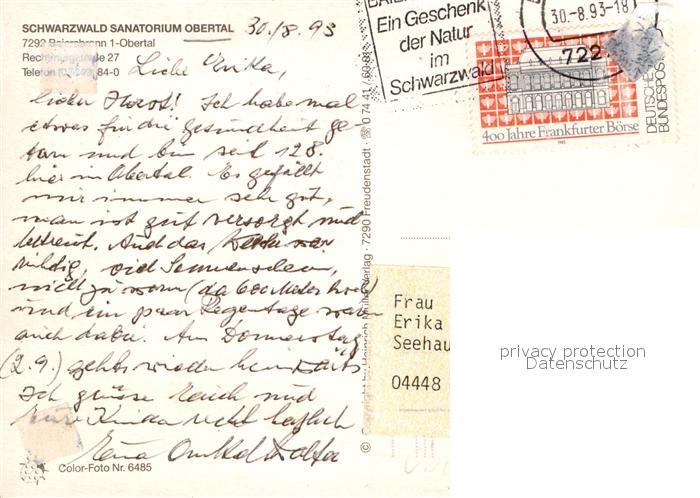 SCHWARZWALD SANATORIUM OBERTAL
7292 Baiersbronn 1-Obertal
Rechtmurgstraße 27
Telefon 84-0
30./8. 93
Liebe Erika,
lieber Horst! Ich habe mal
etwas für die Gesundheit ge
tan und bin seit 12.8.
hier in Obertal. Es gefällt
mir immer sehr gut,
man ist gut versorgt und
betreut. Auch das war
richtig, viel Sonnenschein,
nicht zu warm (da 600 Meter hoch)
und ein paar Regentage waren
auch dabei. Am Donnerstag
(2.9.) geht's wieder heimwärts
Ich grüsse Euch und
Eure Kinder recht herzlich
Euer Onkel
Color-Foto Nr. 6485
© Copyright by Heinrich Müller Verlag · 7290 Freudenstadt · ☎ 0 74 41 / 60 81
Ein Geschenk
der Natur
im
Schwarzwald
30.-8.93-18
722
400 Jahre Frankfurter Börse
DEUTSCHE
BUNDESPOST
Frau
Erika
Seehau
04448
privacy protection
Datenschutz